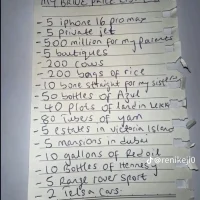 MY BRIDE PRICE LIST
- 5 iphone 16 pro max
- 5 private jet
- 500 million for my parents
- 5 boutiques
- 200 cows
- 200 bags of rice
- 10 bone straight for my sisters
- 50 bottles of Azul
- 40 plots of land in Lekki
- 80 tubers of yam
- 5 estates in victoria Island
- 5 mansions in dubai
- 10 gallons of Red oil
- 10 Bottles of Hennessy
- 5 Range rover sport
- 2 tesla cars
@renikeji0